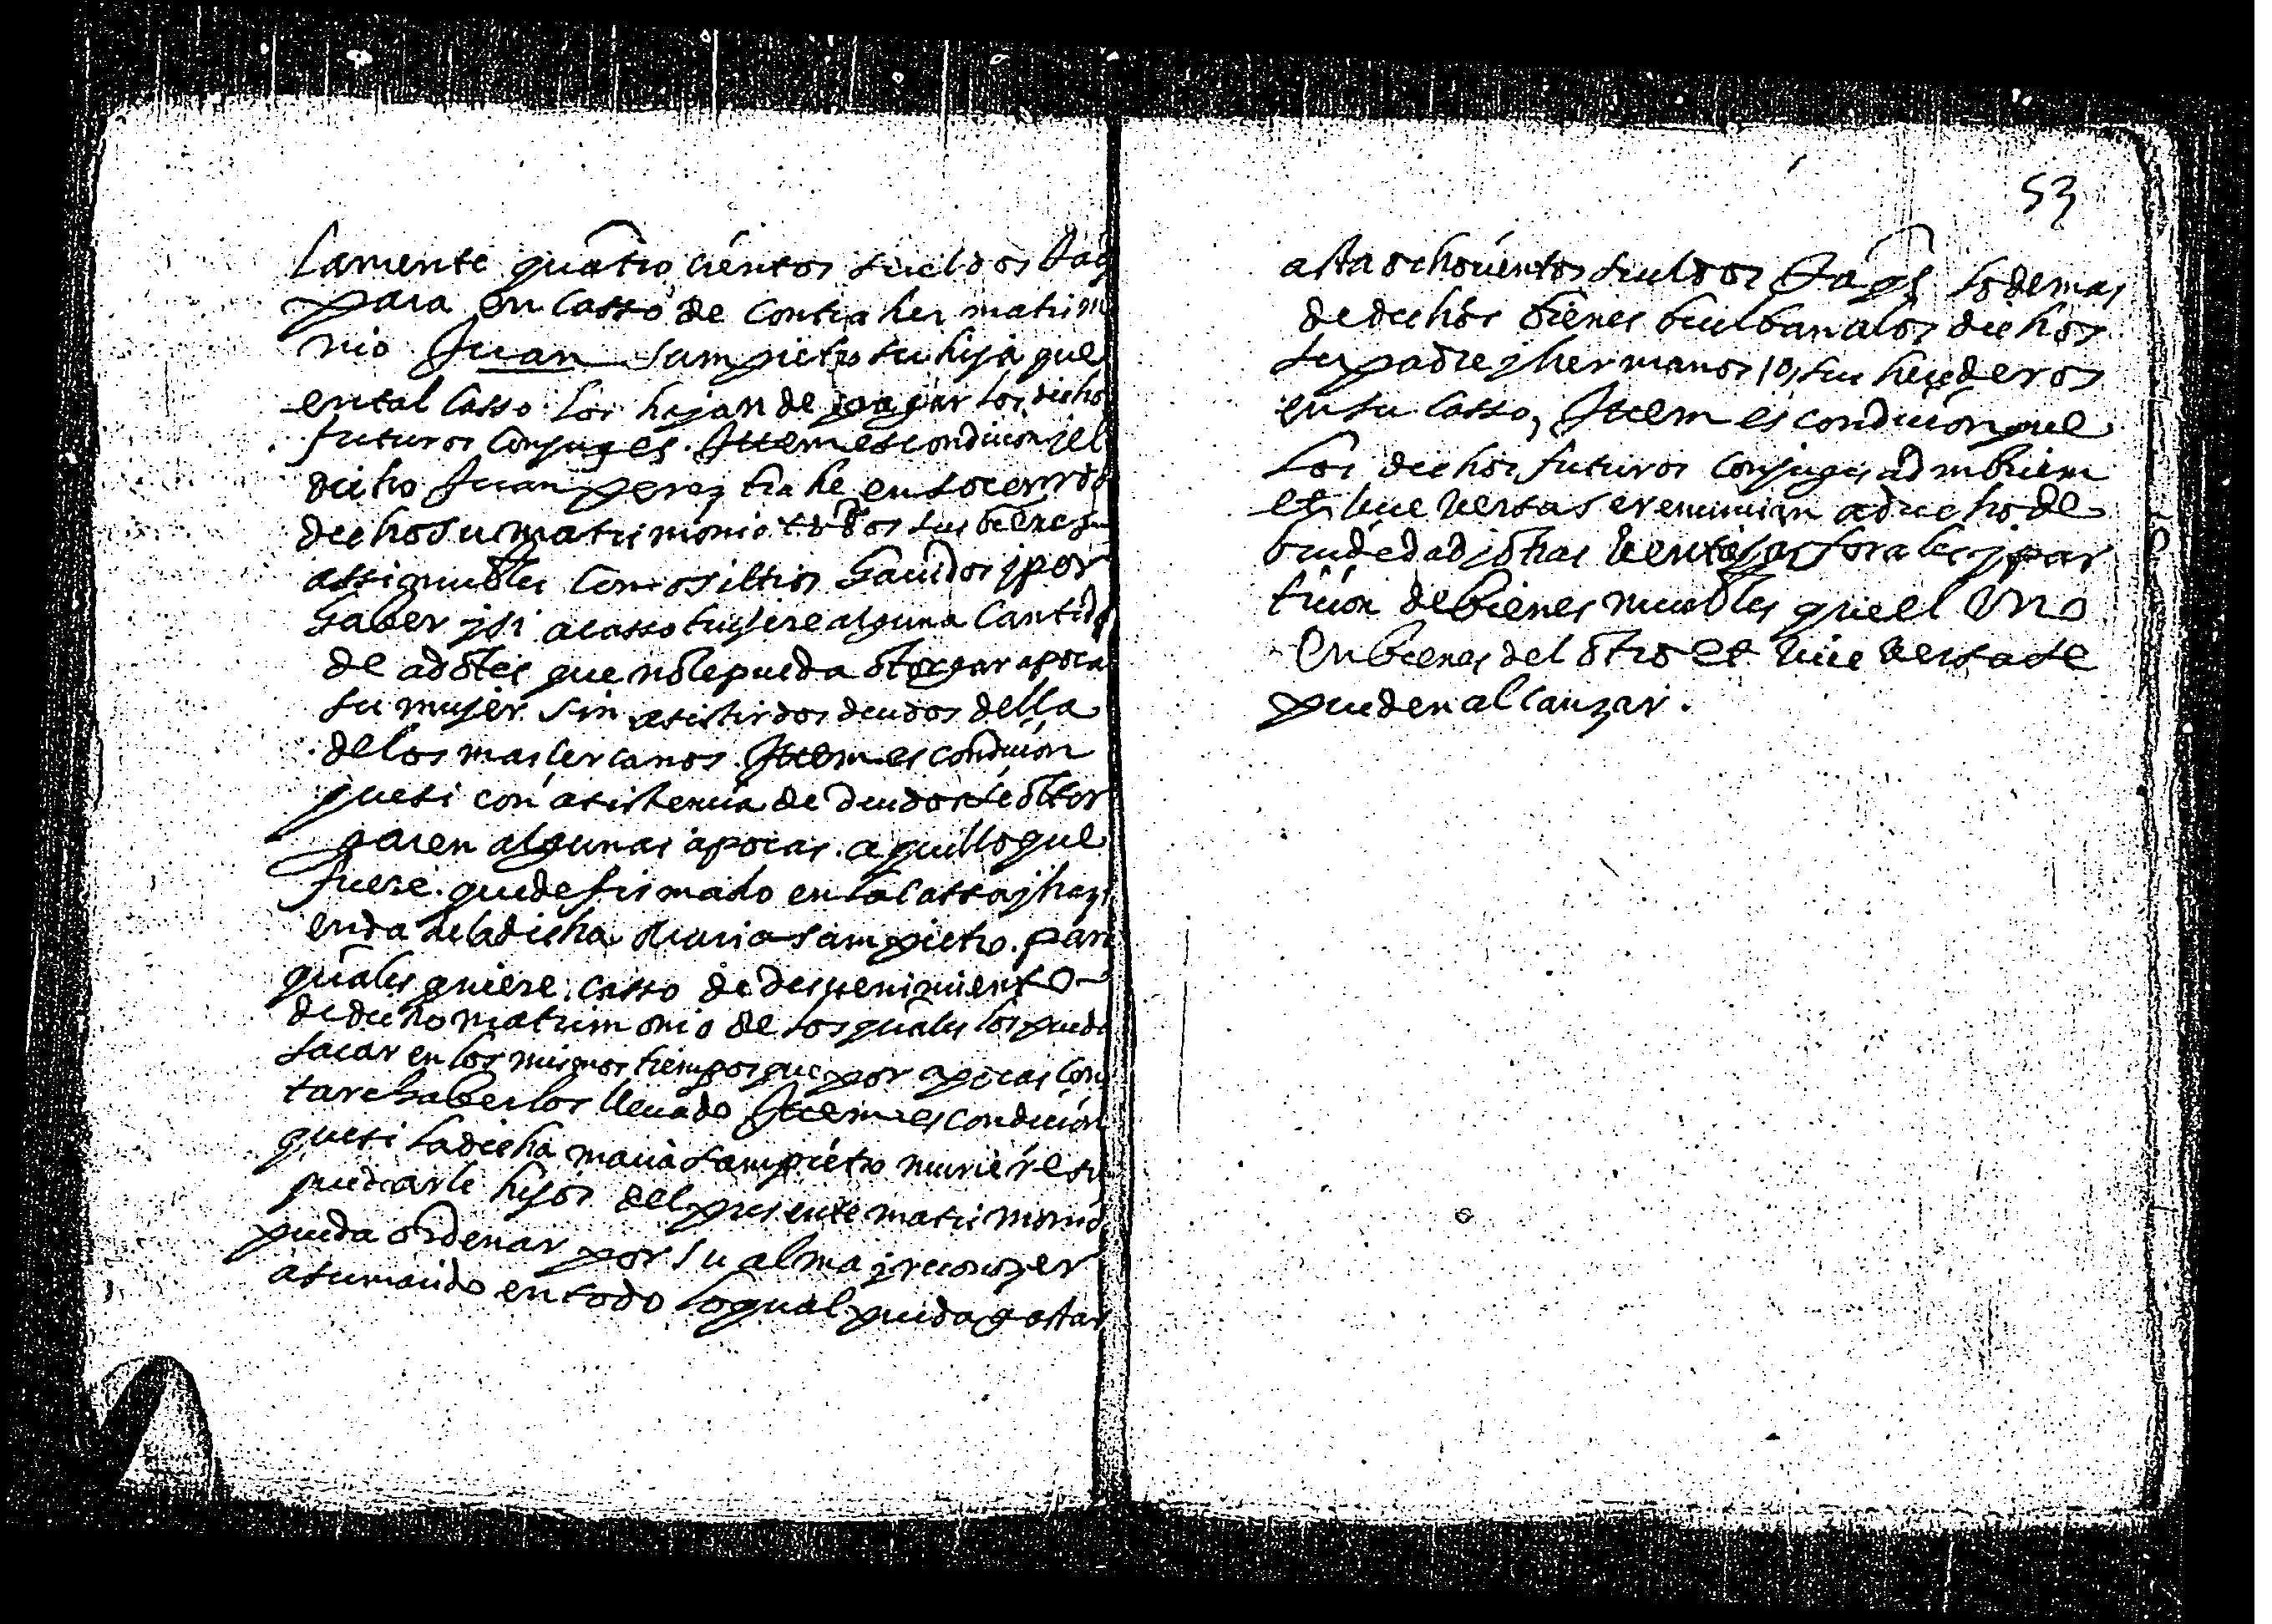 lamente quatro cientos sueldos Jaq
para en casso de contraher matrim
nio Juan sampietro su hija que
en tal casso los hajan de pagar los dicho
futuros conjuges. Ittem es condicion jel
dicho Juan perez trahe en socorro d
dicho su matrimonio todos sus bienes
assi muebles como sittios hauidos y por
hauer y si acasso tuuiere alguna cantid
de adotes que no le pueda otorgar apoca
su mujer sin asistir dos deudos della
de los mas cercanos. Ittem es condicion
que si con asistencia de deudos se otor
garen algunas apocas. aquello que
fuere. quede firmado en la cassa y hazi
enda de la dicha Maria sampietro. para
quales quiere. casso de deuenimiento
de dicho matrimonio de los quales los pueda
sacar en los mismos tiempos que por apocas cons
tare hauerlos lleuado Ittem es condicion
que si la dicha maria sampietro muriere sin
quedarle hijos del presente matrimonio
pueda ordenar por su alma y reconozer
a su marido en todo lo qual pueda gastar
53
asta ochocientos sueldos Jaqs lo demas
de dichos bienes buelban a los dichos
su padre y hermanos, o, sus herederos
en su casso, Ittem es condicion que
los dichos futuros conjuges ad inbicem
et vice versa se renuncian a dicho de
biudedad y otras ventajas forales y par
ticion de bienes muebles que el Uno
en bienes del otro et vice versa se
pueden alcanzar.